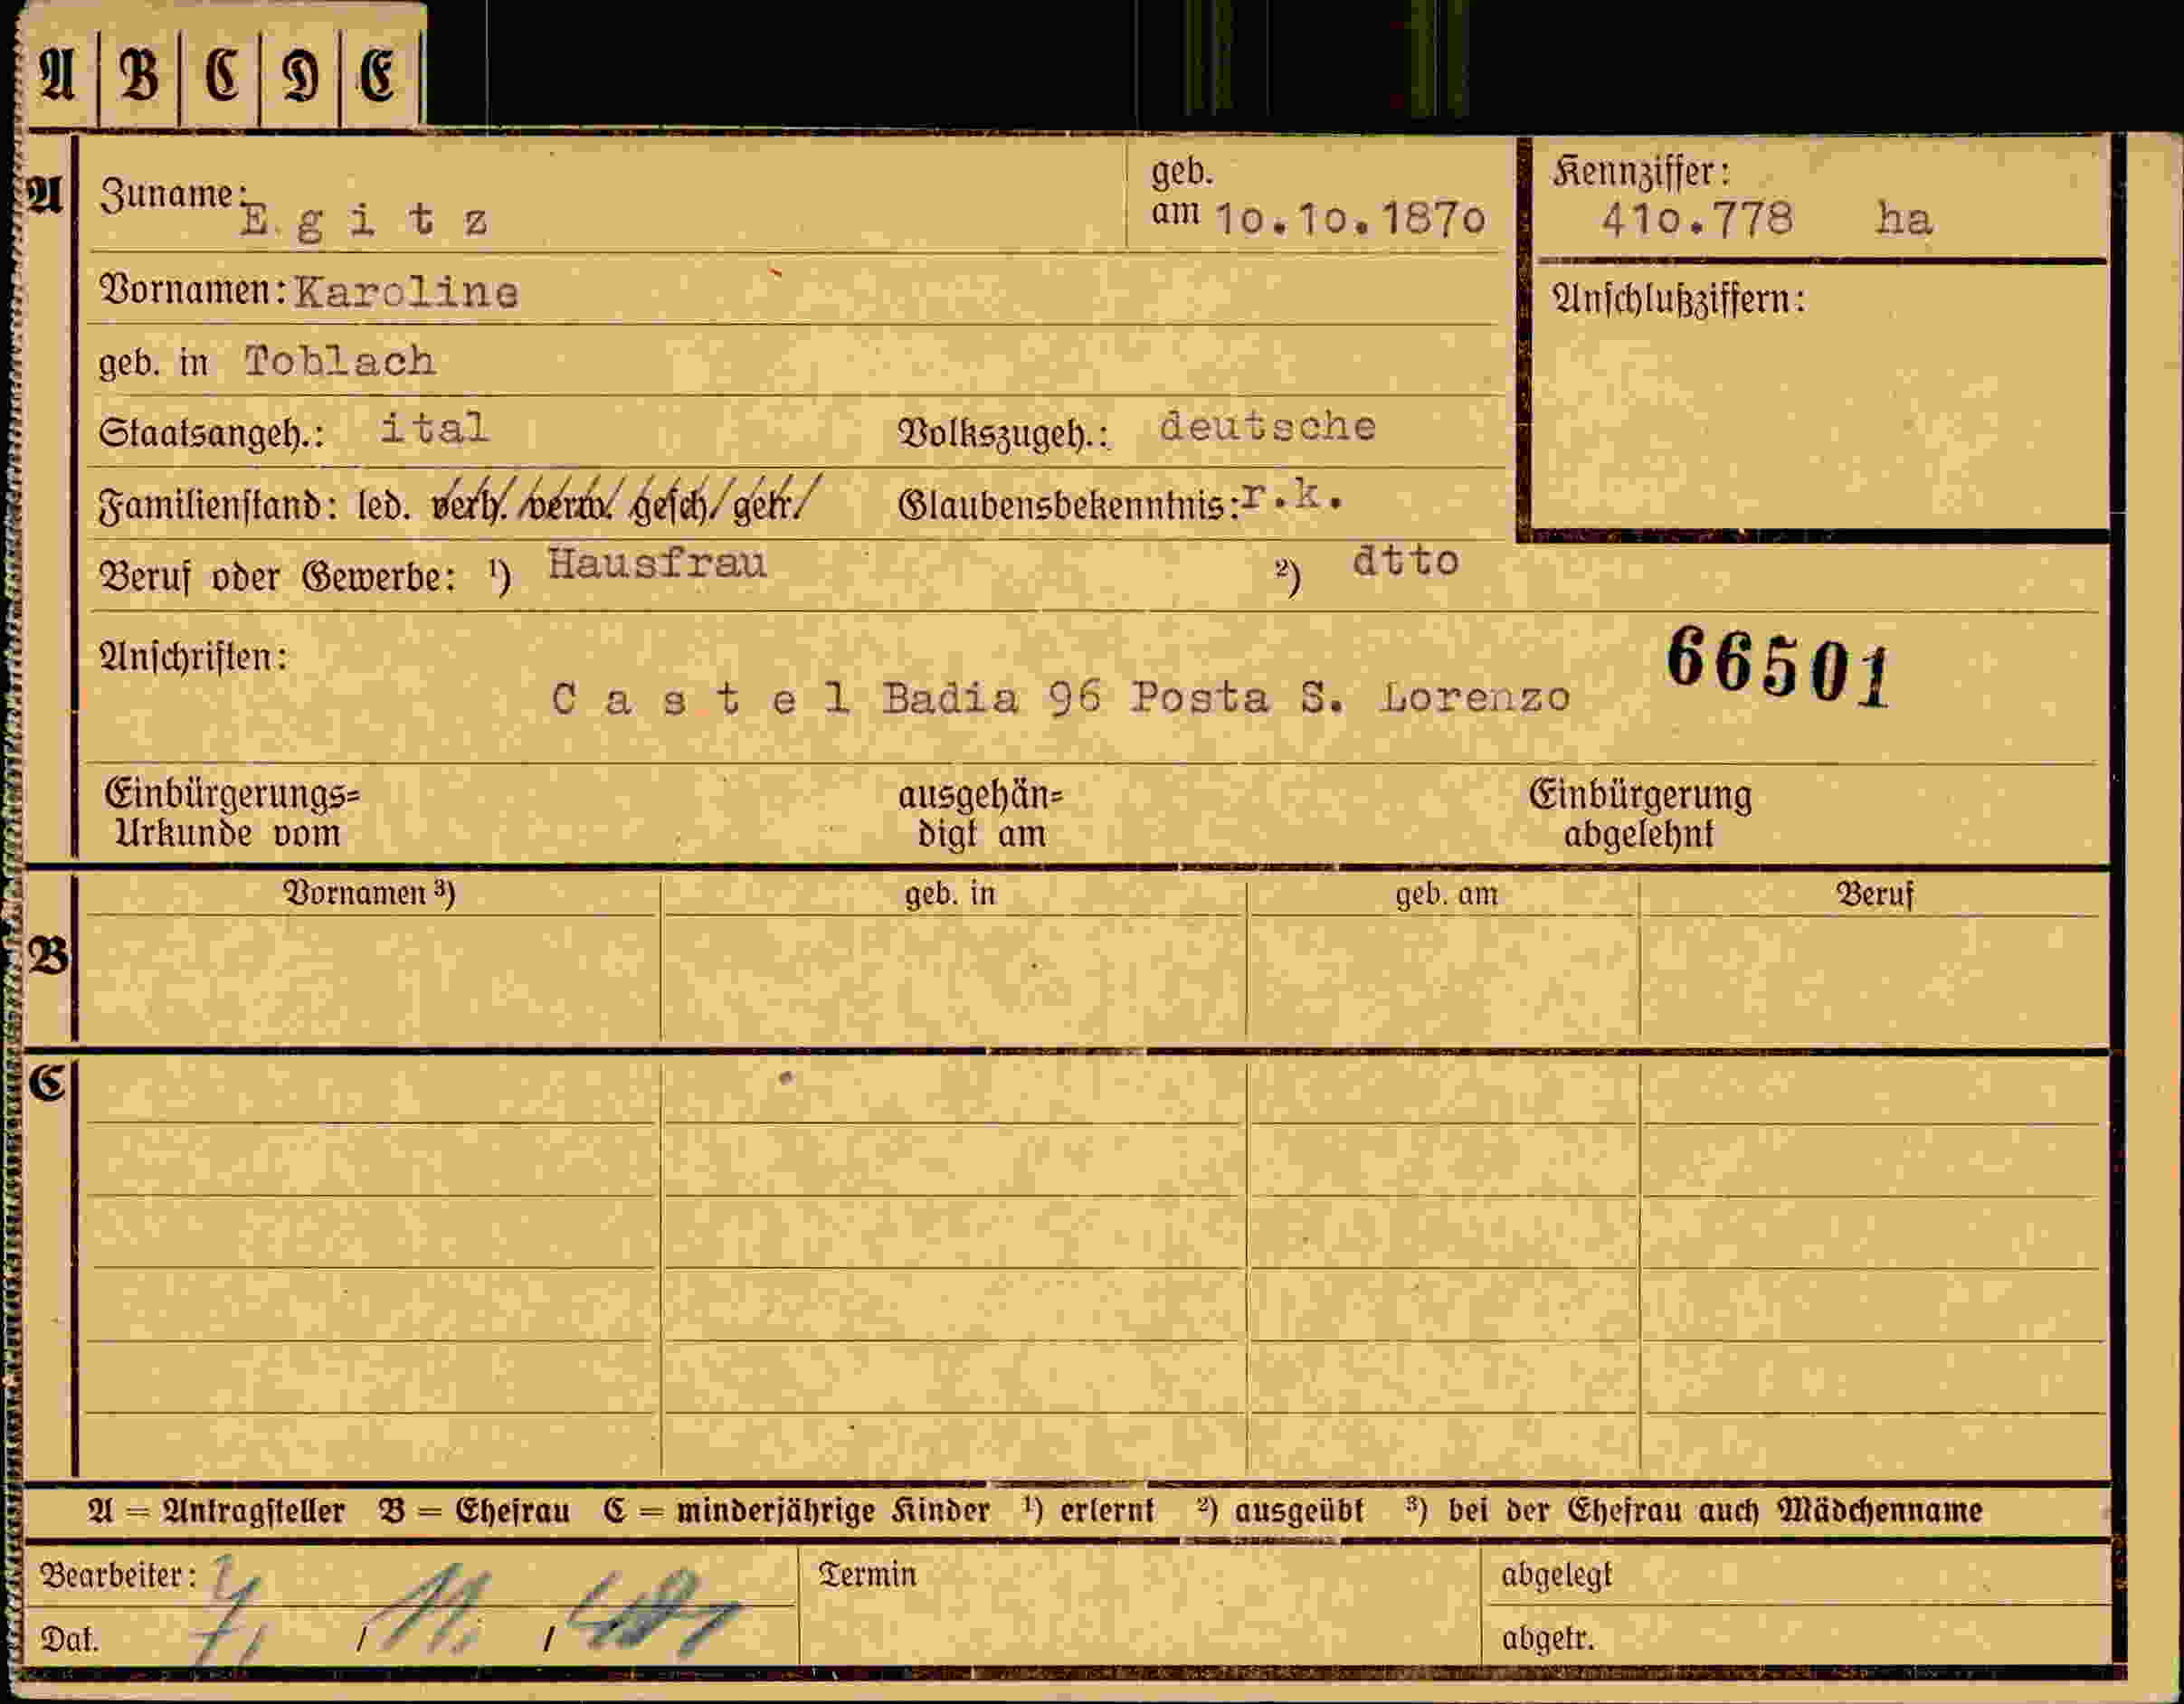 A B C D E
A
Zuname: E g i t z
geb. am 10.10.1870
Kennziffer: 410.778 ha
Vornamen: Karoline
Anschlußziffern:
geb. in Toblach
Staatsangeh.: ital Volkszugeh.: deutsche
Familienstand: led. verh. verw. gesch. getr. Glaubensbekenntnis: r.k.
Beruf oder Gewerbe: ¹) Hausfrau ²) dtto
Anschriften:
66501
C a s t e l Badia 96 Posta S. Lorenzo
Einbürgerungs= ausgehän= Einbürgerung
Urkunde vom digt am abgelehnt
Vornamen ³) geb. in geb. am Beruf
B
C
A = Antragsteller B = Ehefrau C = minderjährige Kinder ¹) erlernt ²) ausgeübt ³) bei der Ehefrau auch Mädchenname
Bearbeiter: Termin abgelegt
Dat. abgetr.